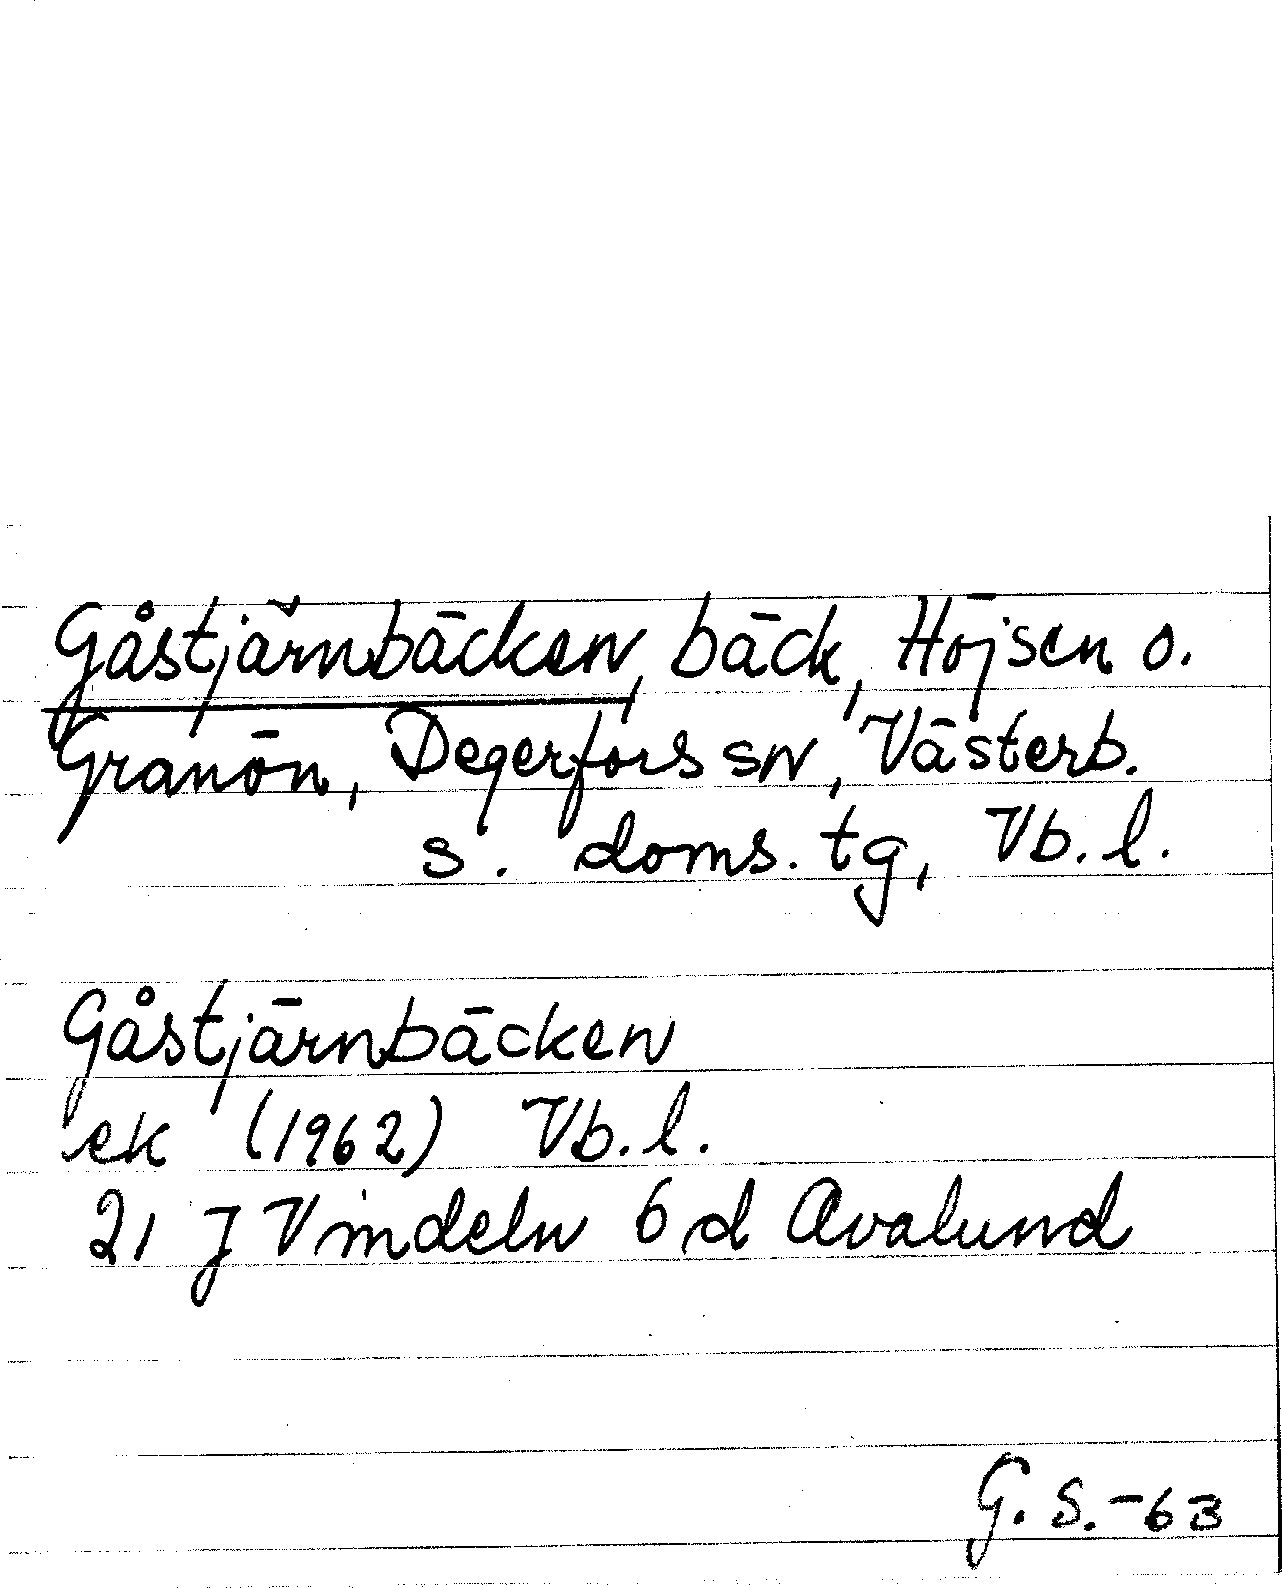 Gåstjärnbäcken, bäck, Höjsen o.
Granön, Degerfors sn, Västerb.
s. doms. tg, Vb. l.
Gåstjärnbäcken
ek (1962) Vb. l.
21 J Vindeln 6 d Avalund
G. S. -63